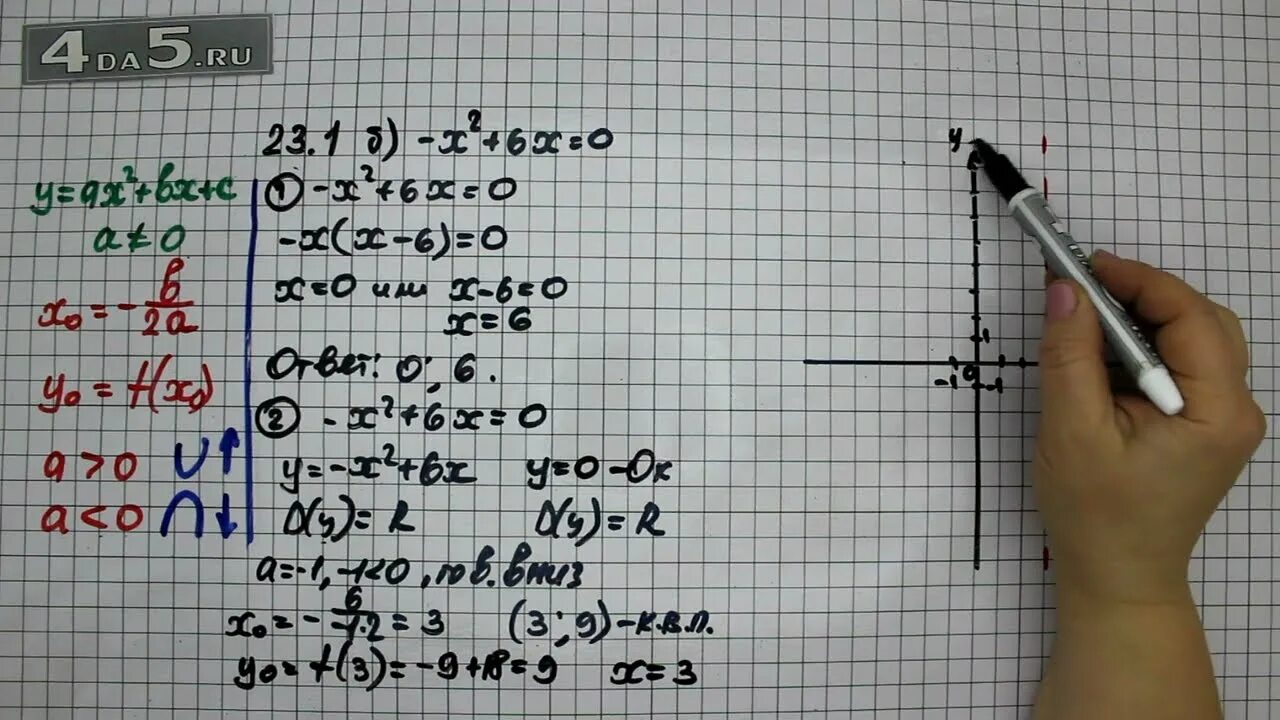 4DA5.RU
23.1 б) -x²+6x=0
y=ax²+bx+c
a≠0
x₀=-b/2a
y₀=f(x₀)
a>0 ∪↑
a<0 ∩↓
① -x²+6x=0
-x(x-6)=0
x=0 или x-6=0
x=6
Ответ: 0; 6.
② -x²+6x=0
y=-x²+6x y=0 -Ox
D(y)=R D(y)=R
a=-1, -1<0, в. вниз
x₀=-6/-1·2=3 (3;9)-к.в.п.
y₀=f(3)=-9+18=9 x=3
y
1
-1 0 1
-1